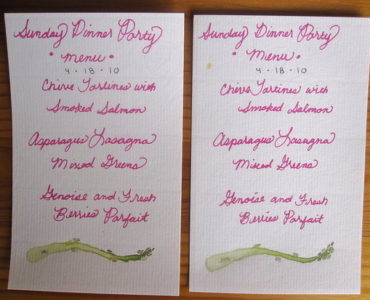 Sunday Dinner Party
• Menu •
4 • 18 • 10
Chive Tartines with
Smoked Salmon
Asparagus Lasagna
Mixed Greens
Genoise and Fresh
Berries Parfait
Sunday Dinner Party
• Menu •
4 • 18 • 10
Chive Tartines with
Smoked Salmon
Asparagus Lasagna
Mixed Greens
Genoise and Fresh
Berries Parfait